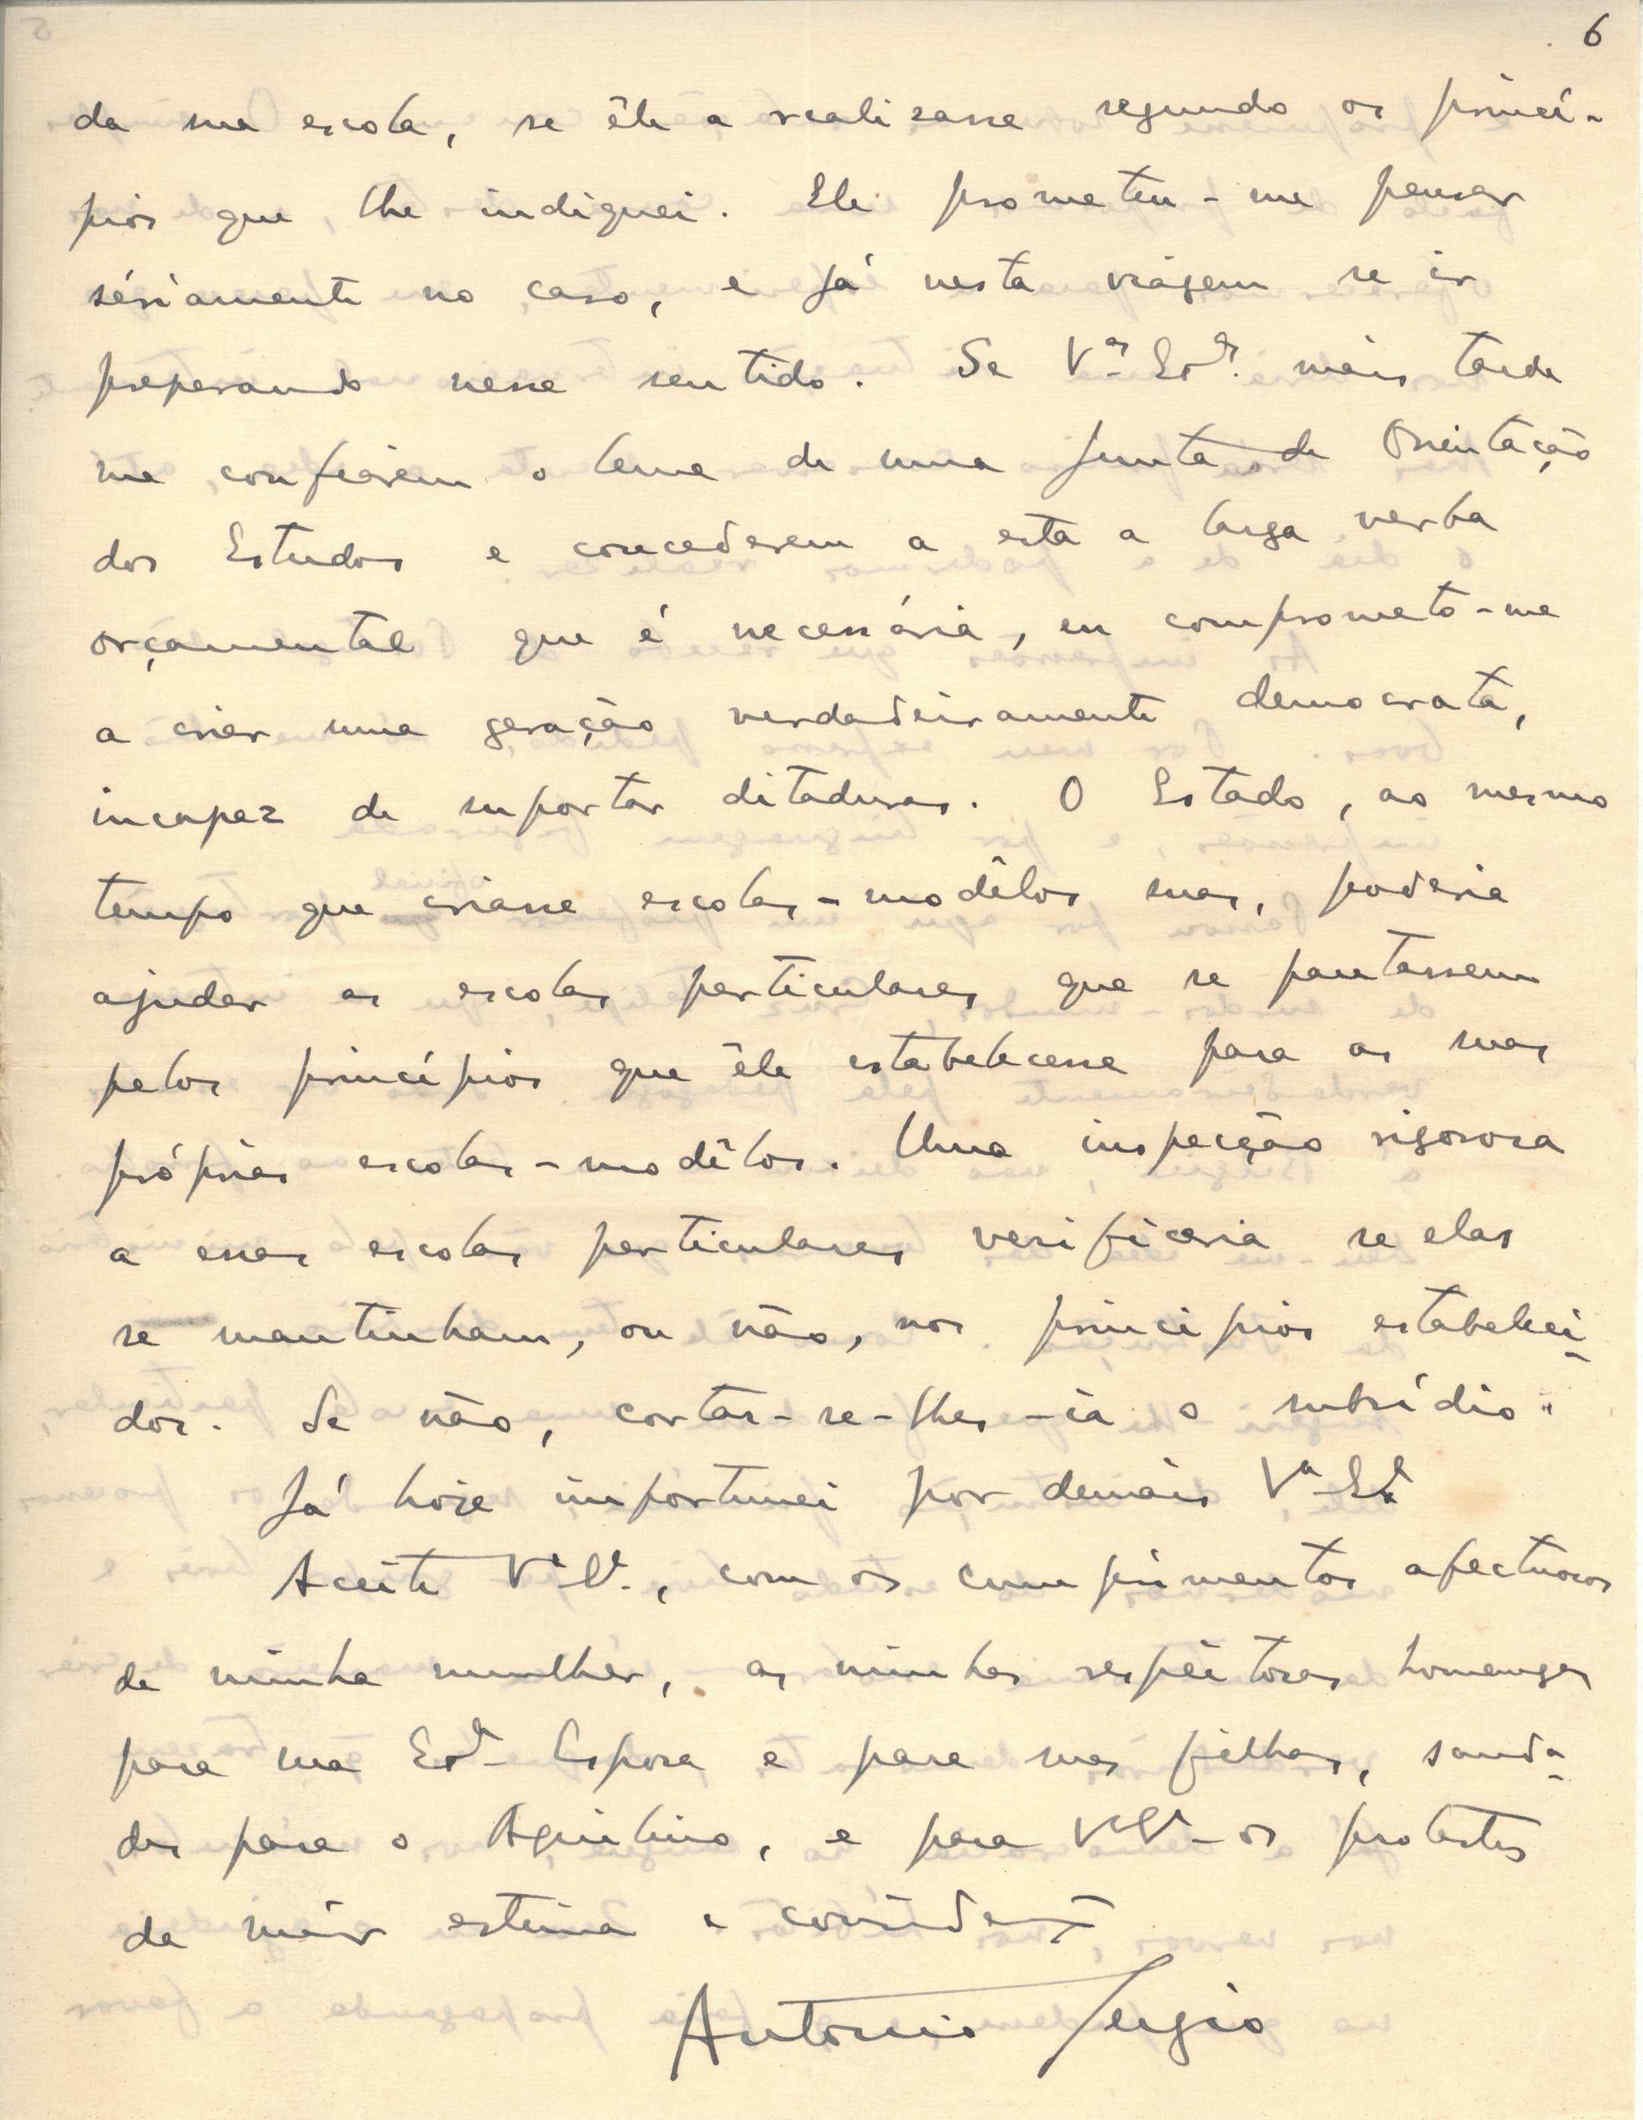 6
da sua escola, se êle a realisasse segundo os princí-
pios que lhe indiquei. Ele prometeu-me pensar
sériamente no caso, e já nesta viagem se ir
preparando nesse sentido. Se V.as Ex.as mais tarde
me confiarem o leme de uma Junta de Orientação
dos Estudos e concederem a esta a larga verba
orçamental que é necessária, eu comprometo-me
a criar uma geração verdadeiramente democrata,
incapaz de suportar ditaduras. O Estado, ao mesmo
tempo que criasse escolas-modêlos suas, poderia
ajudar as escolas particulares que se pautassem
pelos princípios que êle estabelecesse para as suas
próprias escolas-modêlos. Uma inspecção rigorosa
a essas escolas particulares verificaria se elas
se mantinham, ou não, nos princípios estabeleci-
dos. Se não, cortar-se-lhes-ia o subsídio.
Já hoje importunei por demais V.a Ex.a
Aceite V.a Ex.a, com os cumprimentos afectuosos
de minha mulher, as minhas respeitosas homenagens
para sua Ex.ma Esposa e para suas filhas, sauda-
des para o Agritino, e para V.a Ex.a os protestos
da maior estima e considerç.
Antonio Sergio